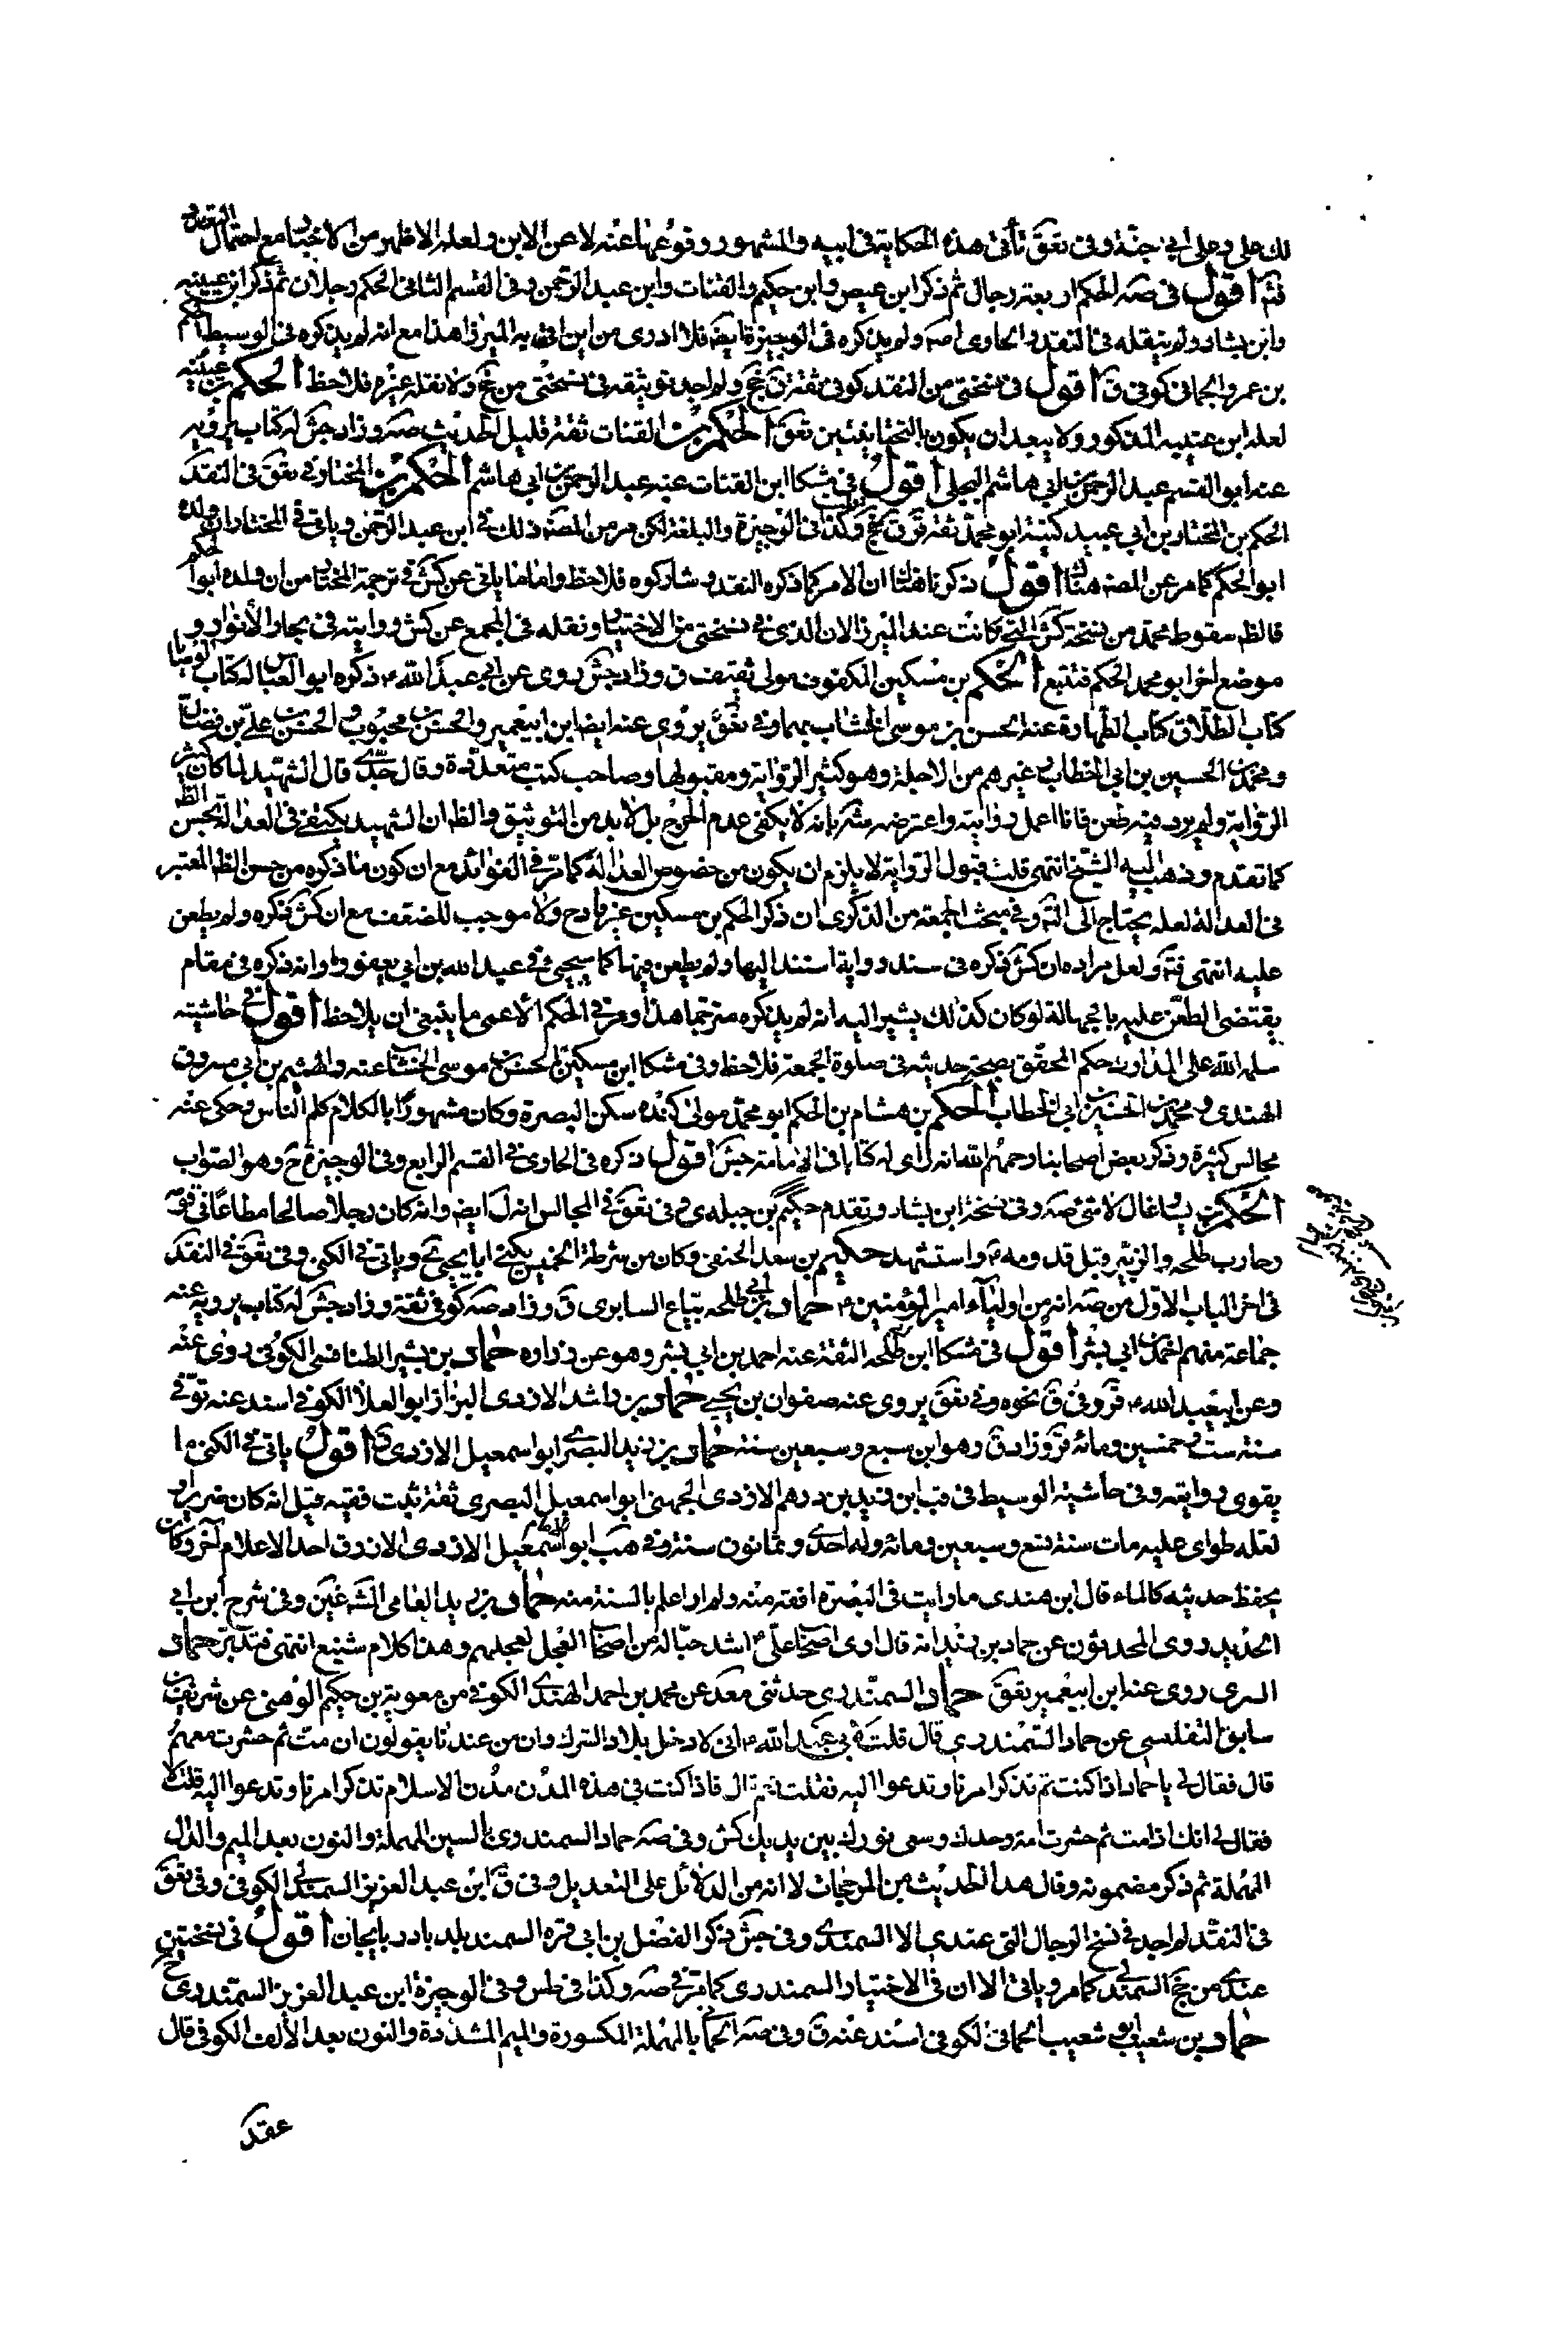 لك علي وعلى ابي جنة وفي تعق تأتي هذه الحكاية في ابيه والمشهور وقوعها عنه لا عن الابن ولعله الاظهر من الاختيار مع احتمال التعدد
أقول في صه الحكم اربعة رجال ثم ذكر ابن عيص وابن حكيم والقتات وابن عبد الرحمن وفي القسم الثاني الحكم رجلان ثم ذكر ابن عيينه
وابن بشار ولم ينقله في النقد والحاوي اصه ولم يذكره في الوجيزة ايضه فلا ادري من اين اتى به الميرزا هذا مع انه لم يذكره في الوسيط الحكم
بن عمرو الجماني كوفي ق أقول في نسختي من النقد كوفي ثقة ق جخ ولم اجد توثيقه في نسختي من جخ ولا نقله غيره فلاحظ الحكم بن عيينه
لعله ابن عتيبه المذكور ولا يبعد ان يكون بالتحتانيتين تعق الحكم بن القتات ثقة قليل الحديث صه وزاد جش له كتاب يرويه
عنه ابو القسم عبد الرحمن بن ابي هاشم البجلي أقول في مشكا ابن القتات عنه عبد الرحمن بن ابي هاشم الحكم بن المختار في تعق في النقد
الحكم بن المختار بن ابي عبيد كنيته ابو محمد ثقة قر ق جخ وكذا في الوجيزة والبلغة لكن مر من المصه ذلك في ابن عبد الرحمن وياتي في المختار ان ولده
ابو الحكم كما مر عن المصه هناك أقول ذكرنا هناك ان الامر كما ذكره النقد وشاركوه فلاحظ واما ما ياتي عن كش في ترجمة المختار من ان ولده ابو الحكم
فالظ سقوط محمد من نسخة كش التي كانت عند الميرزا لان الذي في نسختي من الاختيار ونقله في المجمع عن كش ورايته في بحار الأنوار و
موضع اخر ابو محمد الحكم فتتبع الحكم بن مسكين المكفوف مولى ثقيف ق وزاد جش روى عن ابي عبد الله م ذكره ابو العباس له كتاب الوصايا
كتاب الطلاق كتاب الطهارة عنه الحسن بن موسى الخشاب بهما وفي تعق يروي عنه ايضا ابن ابي عمير والحسن بن محبوب والحسن بن علي بن فضال
ومحمد بن الحسين بن ابي الخطاب وغيرهم من الاجلة وهو كثير الرواية ومقبولها وصاحب كتب متعددة وقال جدي قال الشهيد لما كان كثير
الرواية ولم يرد فيه طعن فانا اعمل بروايته واعترضه بانه لا يكفي عدم الجرح بل لا بد من التوثيق والظ ان الشهيد يكتفي في العدالة بحسن الظ
كما تقدم وذهب اليه الشيخ انتهى قلت قبول الرواية لا يلزم ان يكون من خصوص العدالة كما مر في الفوائد مع ان كون ما ذكره من حسن الظ المعتبر
في العدالة لعله يحتاج الى وفي مبحث الجمعة من الذكرى ان ذكر الحكم بن مسكين غير قادح ولا موجب للضعف مع ان كش ذكره ولم يطعن
عليه انتهى فت ولعل مراده ان كش ذكره في سند رواية استند اليها ولم يطعن فيها كما سيجيئ في عبد الله بن ابي يعفور او انه ذكره في مقام
يقتضي الطعن عليه بالجهالة لو كان كذلك يشير اليه انه لم يذكره مترجما هذا ومر في الحكم الاعمى ما ينبغي ان يلاحظ أقول في حاشيته
سلمه الله على المدارك حكم المحقق بصحة حديثه في صلوة الجمعة فلاحظ وفي مشكا ابن مسكين الحسن بن موسى الخشاب عنه والهيثم بن ابي مسروق
الهندي ومحمد بن الحسين بن ابي الخطاب الحكم بن هشام بن الحكم ابو محمد مولى كنده سكن البصرة وكان مشهورا بالكلام كلم الناس وحكى عنه
مجالس كثيرة وذكر بعض اصحابنا رحمهم الله انه راى له كتابا في الامامة جش أقول ذكره في الحاوي في القسم الرابع وفي الوجيزة ح وهو الصواب
الحكم بن يشا غال لا شئ صه وفي نسخة ابن بشار وتقدم حكيم بن جبله ي وفي تعق في المجالس انه ل ايضه وانه كان رجلا صالحا مطاعا في قومه
وحارب طلحه والزبير قبل قدومه م واستشهد حكيم بن سعد الحنفي وكان من شرطة الخميس يكنى ابا يحيى جخ وياتي في الكنى وفي تعق في النقد
في اخر الباب الاول من صه انه من اولياء امير المؤمنين م حماد بن ابي طلحه بياع السابري ق وزاد صه كوفي ثقة وزاد جش له كتاب يرويه عنه
جماعة منهم احمد بن ابي بشر أقول في مشكا ابن ابي طلحه الثقة عنه احمد بن ابي بشر وهو عن زراره حماد بن بشير الطنافسي الكوفي روى عنه
وعن ابي عبد الله م قر وفي ق نحوه وفي تعق يروي عنه صفوان بن يحيى حماد بن راشد الازدي البزاز ابو العلا الكوفي اسند عنه توفي
سنة ست وخمسين ومائه قر وزاد ق وهو ابن سبع وسبعين سنة حماد بن زيد البصري ابو اسمعيل الازدي ق أقول ياتي في الكنى ما
يقوى روايته وفي حاشية الوسيط في قب ابن زيد بن درهم الازدي الجهضمي ابو اسمعيل البصري ثقة ثبت فقيه قيل انه كان ضريرا و
لعله طرأ عليه مات سنة تسع وسبعين ومائه وله احدى وثمانون سنة وفي هب ابو اسمعيل الازدي الازرق احد الاعلام وكان
يحفظ حديثه كالماء قال ابن مهدي ما رايت في البصرة افقه منه ولم ار اعلم بالسنة منه حماد بن يزيد العامي وفي شرح ابن ابي
الحديد روى المحدثون عن حماد بن زيد انه قال ارى اصحاب علي م اشد حبا له من اصحاب العجل لعجلهم وهذا كلام شنيع انتهى فتدبر حماد
السري روى عنه ابن ابي عمير تعق حماد السمندري حدثني عن محمد بن احمد النهدي الكوفي عن معوية بن حكيم الدهني عن شريف بن
سابق التفليسي عن حماد السمندري قال قلت لابي عبد الله م اني لادخل بلاد الترك وان من عندنا يقولون ان مت ثم حشرت معهم
قال فقال لي يا حماد اذا كنت ثم تذكر امرنا وتدعوا اليه فقلت نعم قال فاذا كنت في هذه المدن مدن الاسلام تذكر امرنا وتدعوا اليه قلت لا
فقال لي انك اذا مت ثم حشرت امة وحدك وسعى نورك بين يديك كش وفي صه حماد السمندري بالسين المهملة والنون بعد الميم والدال
المهملة ثم ذكر مضمونه وقال هذا الحديث من المرجحات لا انه من الدلائل على التعديل وفي ق ابن عبد العزيز السمندلي الكوفي وفي تعق
في النقد لم اجد في نسخ الرجال التي عندي الا السمندي وفي جش ذكر الفضل بن ابي قره السمند بلد باذربايجان أقول في نسختين
عندي من جخ السمندلي كما مر وياتي الا ان في الاختيار السمندري كما مر في صه وكذا في طس وفي الوجيزة ابن عبد العزيز السمندري ح
حماد بن شعيب ابو شعيب الحماني الكوفي اسند عنه ق وفي صه الحماني بالمهملة المكسورة والميم المشددة والنون بعد الألف الكوفي قال
عقد